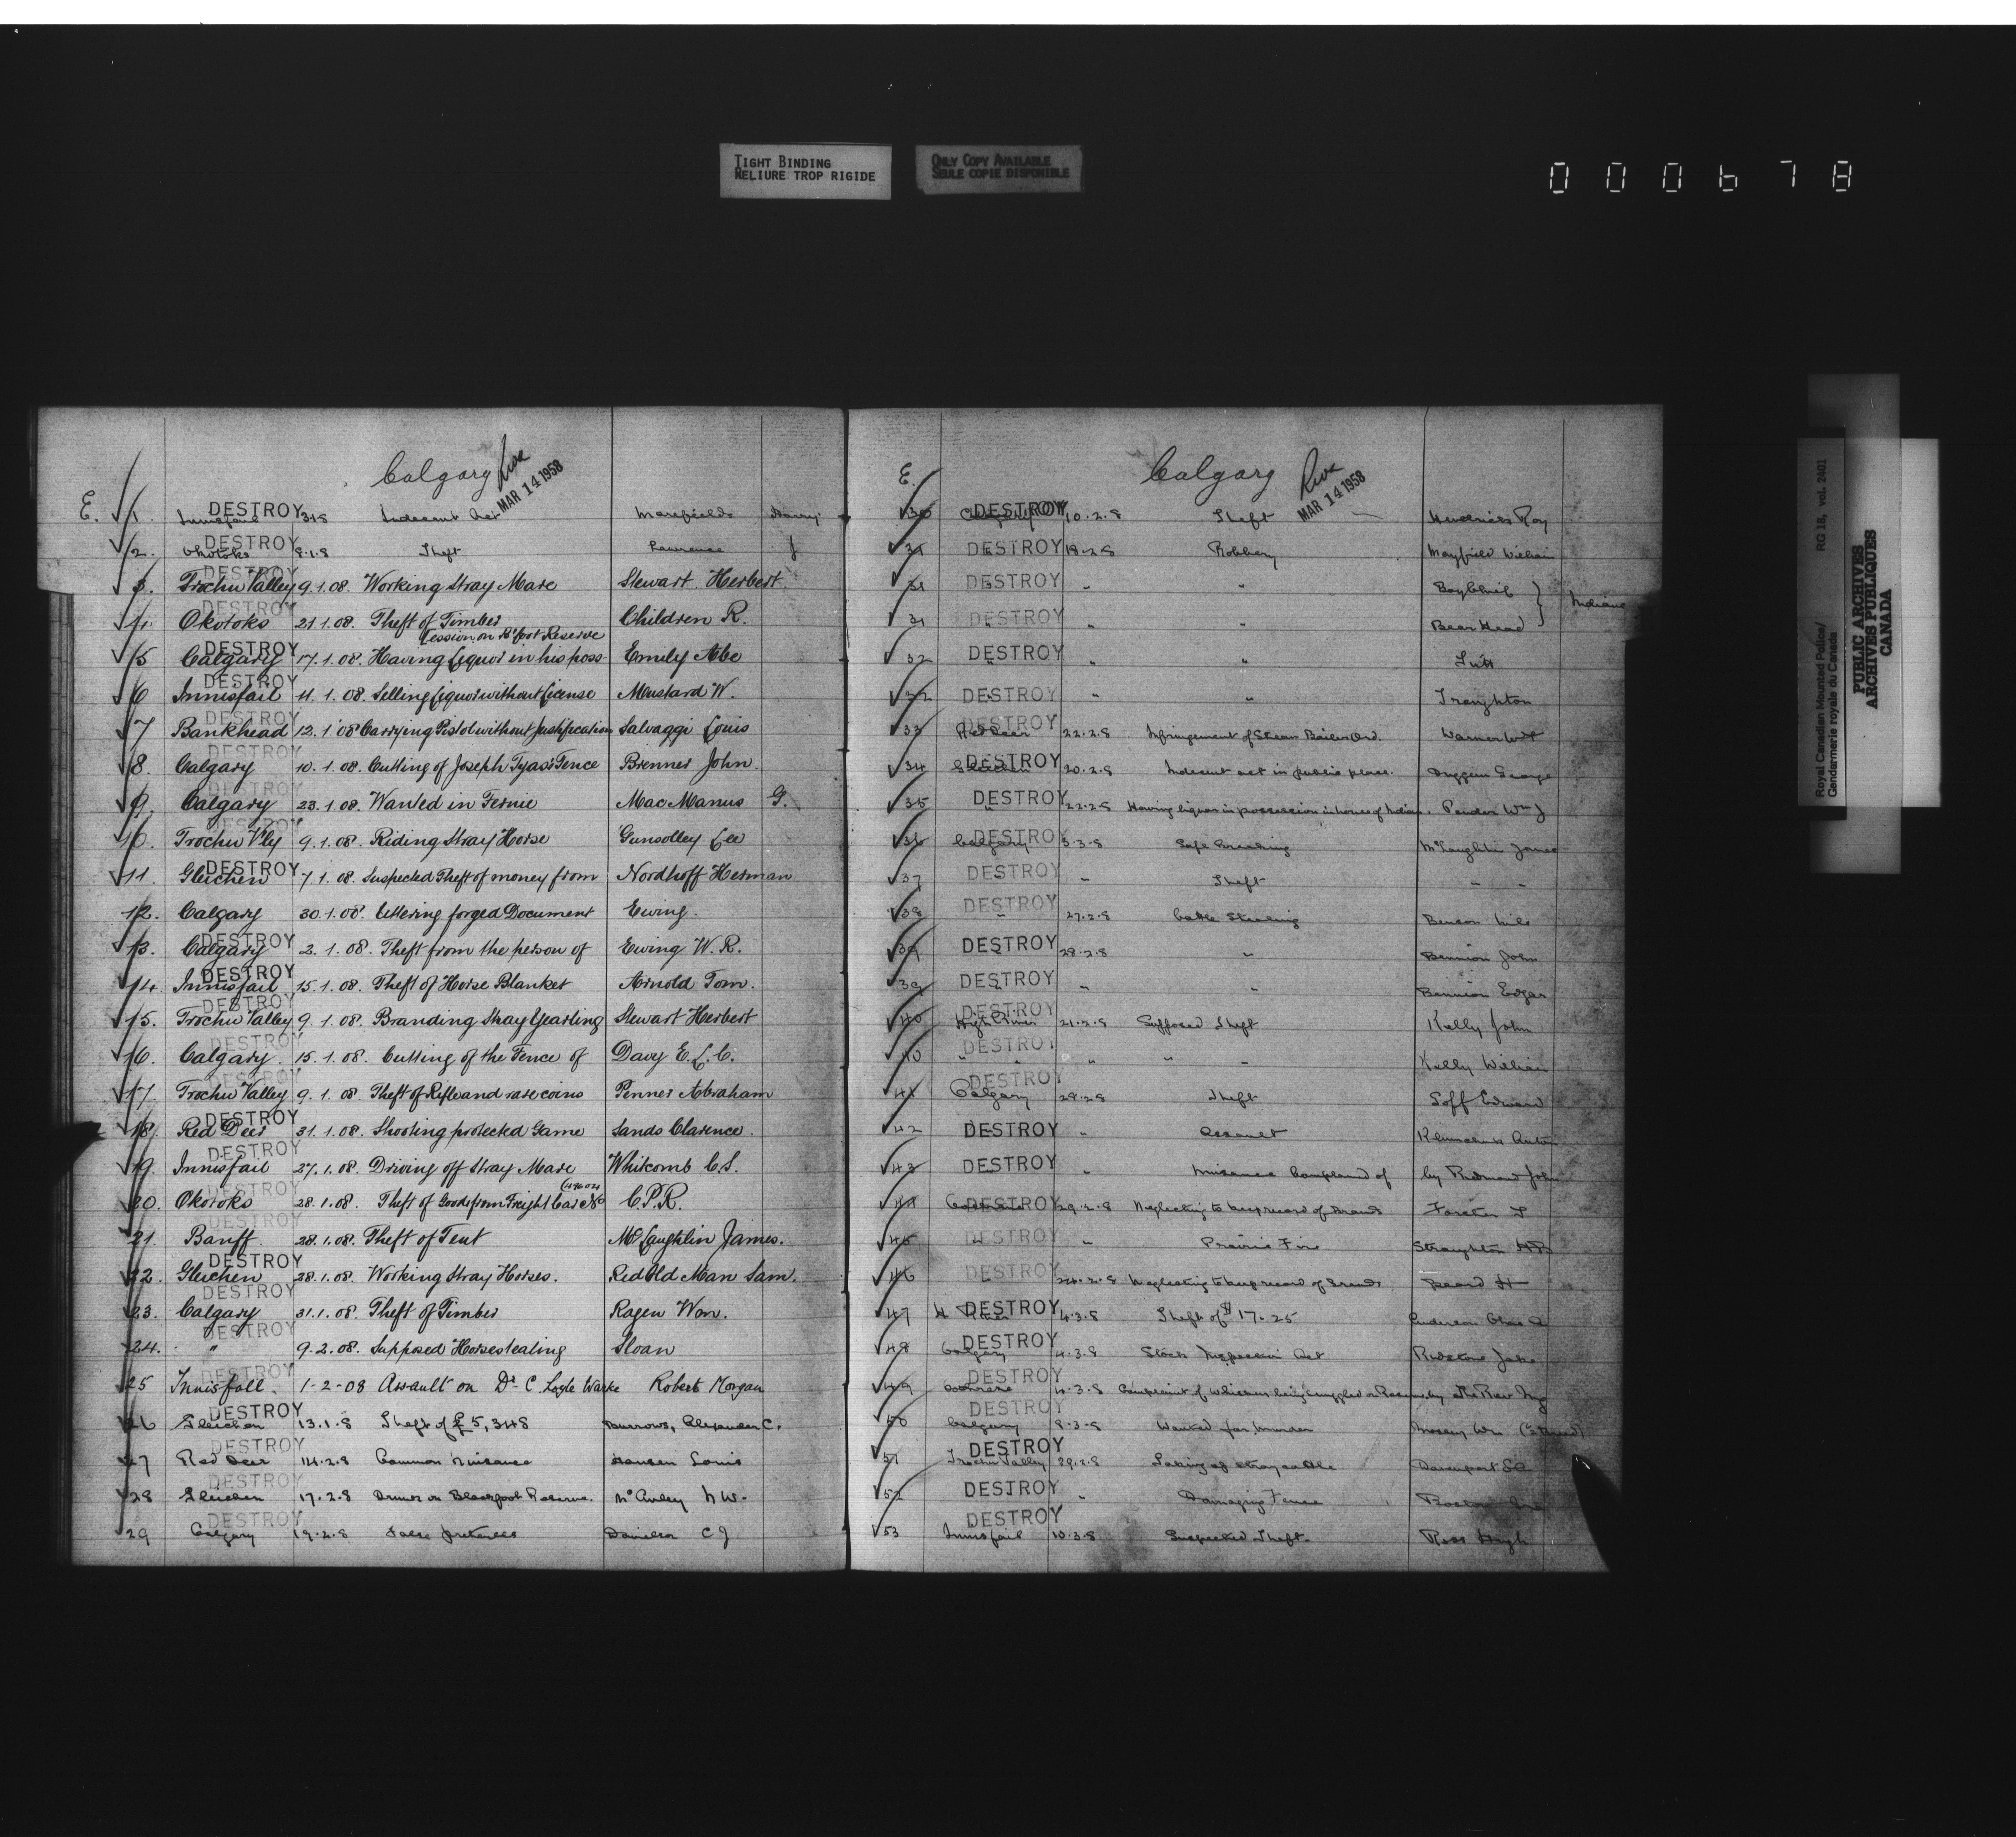 TIGHT BINDING
RELIURE TROP RIGIDE
ONLY COPY AVAILABLE
SEULE COPIE DISPONIBLE
000678
Calgary
MAR 14 1958
E. 1. DESTROY Innisfail 3.1.8 Indecent Act Marefields Harry
2. DESTROY Okotoks 8.1.8 Theft Lawrence J
3. DESTROY Trochu Valley 9.1.08. Working Stray Mare Stewart Herbert
4. DESTROY Okotoks 21.1.08. Theft of Timber Children R.
5 DESTROY Calgary 17.1.08. Having Liquor in his poss- Emily Abe
session on B'foot Reserve
6 DESTROY Innisfail 11.1.08. Selling Liquor without License Mustard W.
7 DESTROY Bankhead 12.1.08 Carrying Pistol without Justification Salvaggi Louis
8. DESTROY Calgary 10.1.08. Cutting of Joseph Tyas's Fence Brenner John.
9. DESTROY Calgary 23.1.08. Wanted in Fernie MacManus G.
10. DESTROY Trochu V'ly 9.1.08. Riding Stray Horse Gunsolley Lee
11. DESTROY Gleichen 7.1.08. Suspected Theft of money from Nordhoff Herman
12. Calgary 30.1.08. Uttering forged Document Ewing.
13. DESTROY Calgary 2.1.08. Theft from the person of Ewing W.R.
14. DESTROY Innisfail 15.1.08. Theft of Horse Blanket Arnold Tom.
15. DESTROY Trochu Valley 9.1.08. Branding Stray Yearling Stewart Herbert
16. DESTROY Calgary. 15.1.08. Cutting of the Fence of Davy E.L.C.
17. DESTROY Trochu Valley 9.1.08 Theft of Rifle and rare coins Penner Abraham
18. DESTROY Red Deer 31.1.08. Shooting protected Game Sands Clarence.
19. DESTROY Innisfail 27.1.08. Driving off Stray Mare Whitcomb C.S.
20. DESTROY Okotoks 28.1.08. Theft of Goods from Freight Car No C.P.R.
21. DESTROY Banff. 28.1.08. Theft of Tent McLaughlin James.
22. DESTROY Gleichen 28.1.08. Working Stray Horses. Red Old Man Sam.
23. DESTROY Calgary 31.1.08. Theft of Timber Ragen Wm.
24. DESTROY " 9.2.08. Supposed Horsestealing Sloan
25 DESTROY Innisfall. 1-2-08 Assault on Dr. C. Loyle Warke Robert Morgan
26 DESTROY Gleichen 13.1.8 Theft of £5,348 Burrows, Alexander C.
27 DESTROY Red Deer 14.2.8 Common Nuisance Hansen Louis
28 DESTROY Gleichen 17.2.8 Drunk on Blackfoot Reserve. McAuley N W.
29 DESTROY Calgary 19.2.8 False pretences Danielson C J
Calgary
MAR 14 1958
E. 30 DESTROY Calgary 10.2.8 Theft Hendricks Roy
31 DESTROY " 18.2.8 Robbery Mayfield William
31 DESTROY " " " Boy Chief } Indians
31 DESTROY " " " Bear Head
32 DESTROY " " "
32 DESTROY " " " Troughton
33 DESTROY Red Deer 22.2.8 Infringement of Steam Boiler Ord. Warner
34 DESTROY Gleichen 20.2.8 Indecent act in public place. Duggan George
35 DESTROY " 22.2.8 Having liquor in possession in house of Indian. Pender Wm J
36 DESTROY Calgary 3.3.8 Safe Breaking McLaughlin James
37 DESTROY " " Theft " "
38 DESTROY " 27.2.8 Cattle Stealing Benson
39 DESTROY " 28.2.8 " Bennion John
39 DESTROY " " " Bennion Edgar
40 DESTROY High River 21.2.8 Supposed Theft Kelly John
40 DESTROY " " " " Kelly William
41 DESTROY Calgary 28.2.8 Theft Goff Edward
42 DESTROY " " Assault
43 DESTROY " " Nuisance Complained of by Redmond John
44 DESTROY Cochrane 29.2.8 Neglecting to keep record of Brands Forster
45 DESTROY " " Prairie Fire Straughton
46 DESTROY " 24.2.8 Neglecting to keep record of Brands Beard H
47 DESTROY H River 4.3.8 Theft of $17.25 Anderson Chas
48 DESTROY Calgary 4.3.8 Stock Inspection Act Ridstone Jake
49 DESTROY Cochrane 4.3.8 Complaint of Whiskey being smuggled on Reserve by The Rev
50 DESTROY Calgary 8.3.8 Wanted for Murder Mosley Wm
51 DESTROY Trochu Valley 29.2.8 Taking up stray cattle Davenport
52 DESTROY " " Damaging Fence
53 DESTROY Innisfail 10.3.8 Suspected Theft. Ross Hugh
Royal Canadian Mounted Police/
Gendarmerie royale du Canada
RG 18, vol. 2401
PUBLIC ARCHIVES
ARCHIVES PUBLIQUES
CANADA